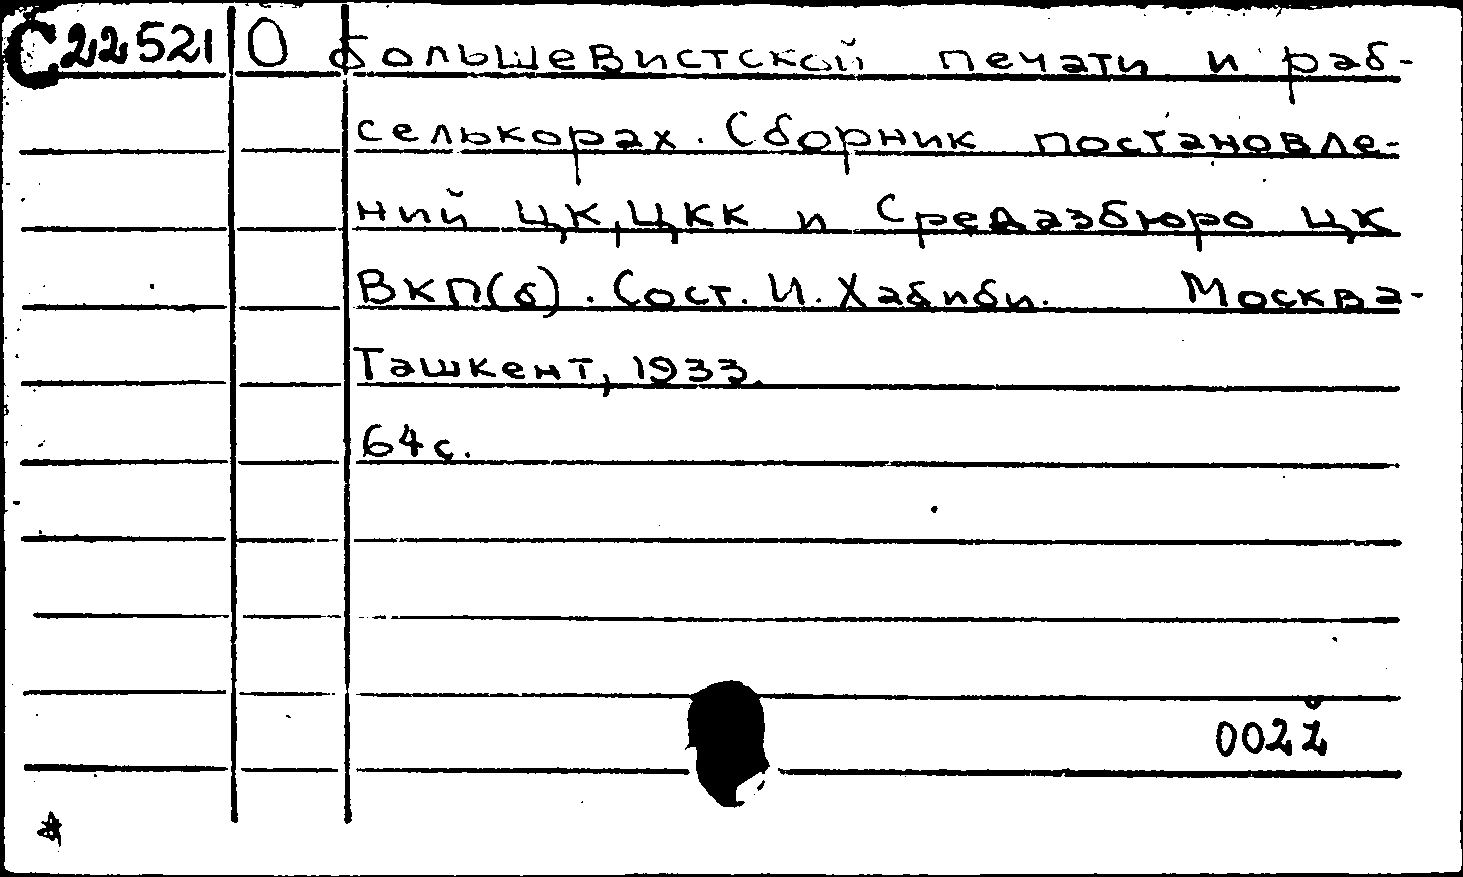 С22521 О большевистской печати и раб-
селькорах. Сборник постановле-
ний ЦК, ЦКК и Средазбюро ЦК
ВКП(б). Сост. И. Хабиби. Москва-
Ташкент, 1933.
64 с.